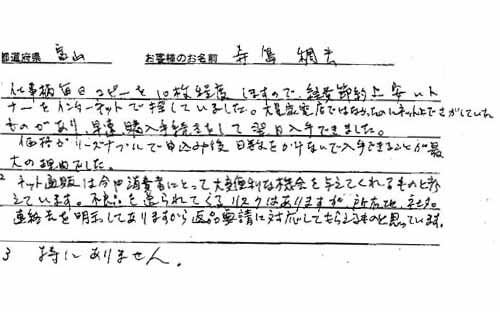 都道府県 富山 お客様のお名前 寺島
仕事柄毎日コピーを10枚程度しますので、経費節約上安いト
ナーをインターネットで探していました。大量家電店ではなかったのにネット上でさがしていた
ものがあり、早速購入手続きをして翌日入手できました。
価格がリーズナブルで申込み後日数をかけないで入手できることが最
大の理由でした。
2 ネット通販は今や消費者にとって大変便利な機会を与えてくれるものと考
えています。不良品を送られてくるリスクはありますが所在地、社名、
連絡先を明示してありますから返品要請に対応してもらえるものと思っています。
3 特にありません。